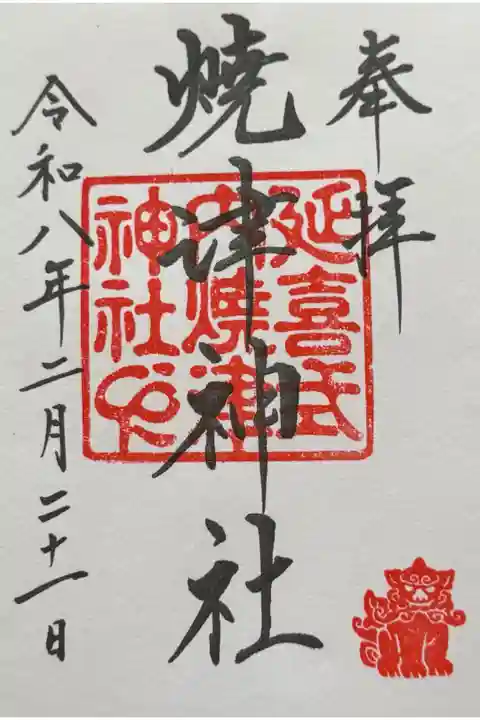 奉拝
焼津神社
令和八年二月二十一日
延喜式
内焼津
神社印